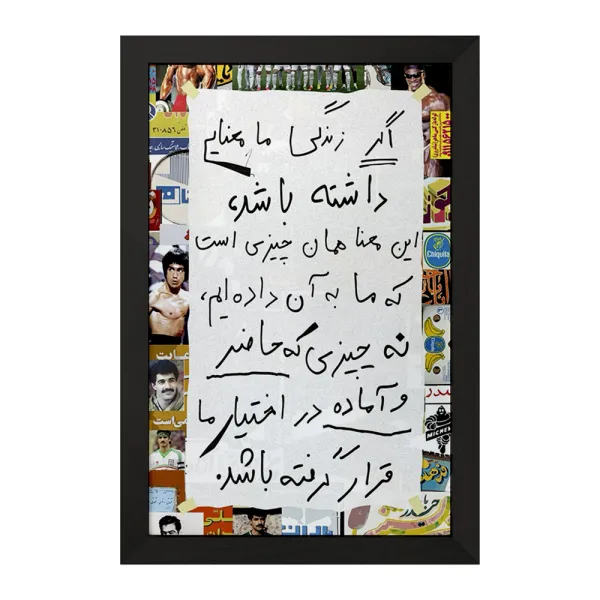 اگر زندگی ما معنایی
داشته باشد،
این معنا همان چیزی است
که ما به آن داده ایم،
نه چیزی که حاضر
و آماده در اختیار ما
قرار گرفته باشد.
Chiquita